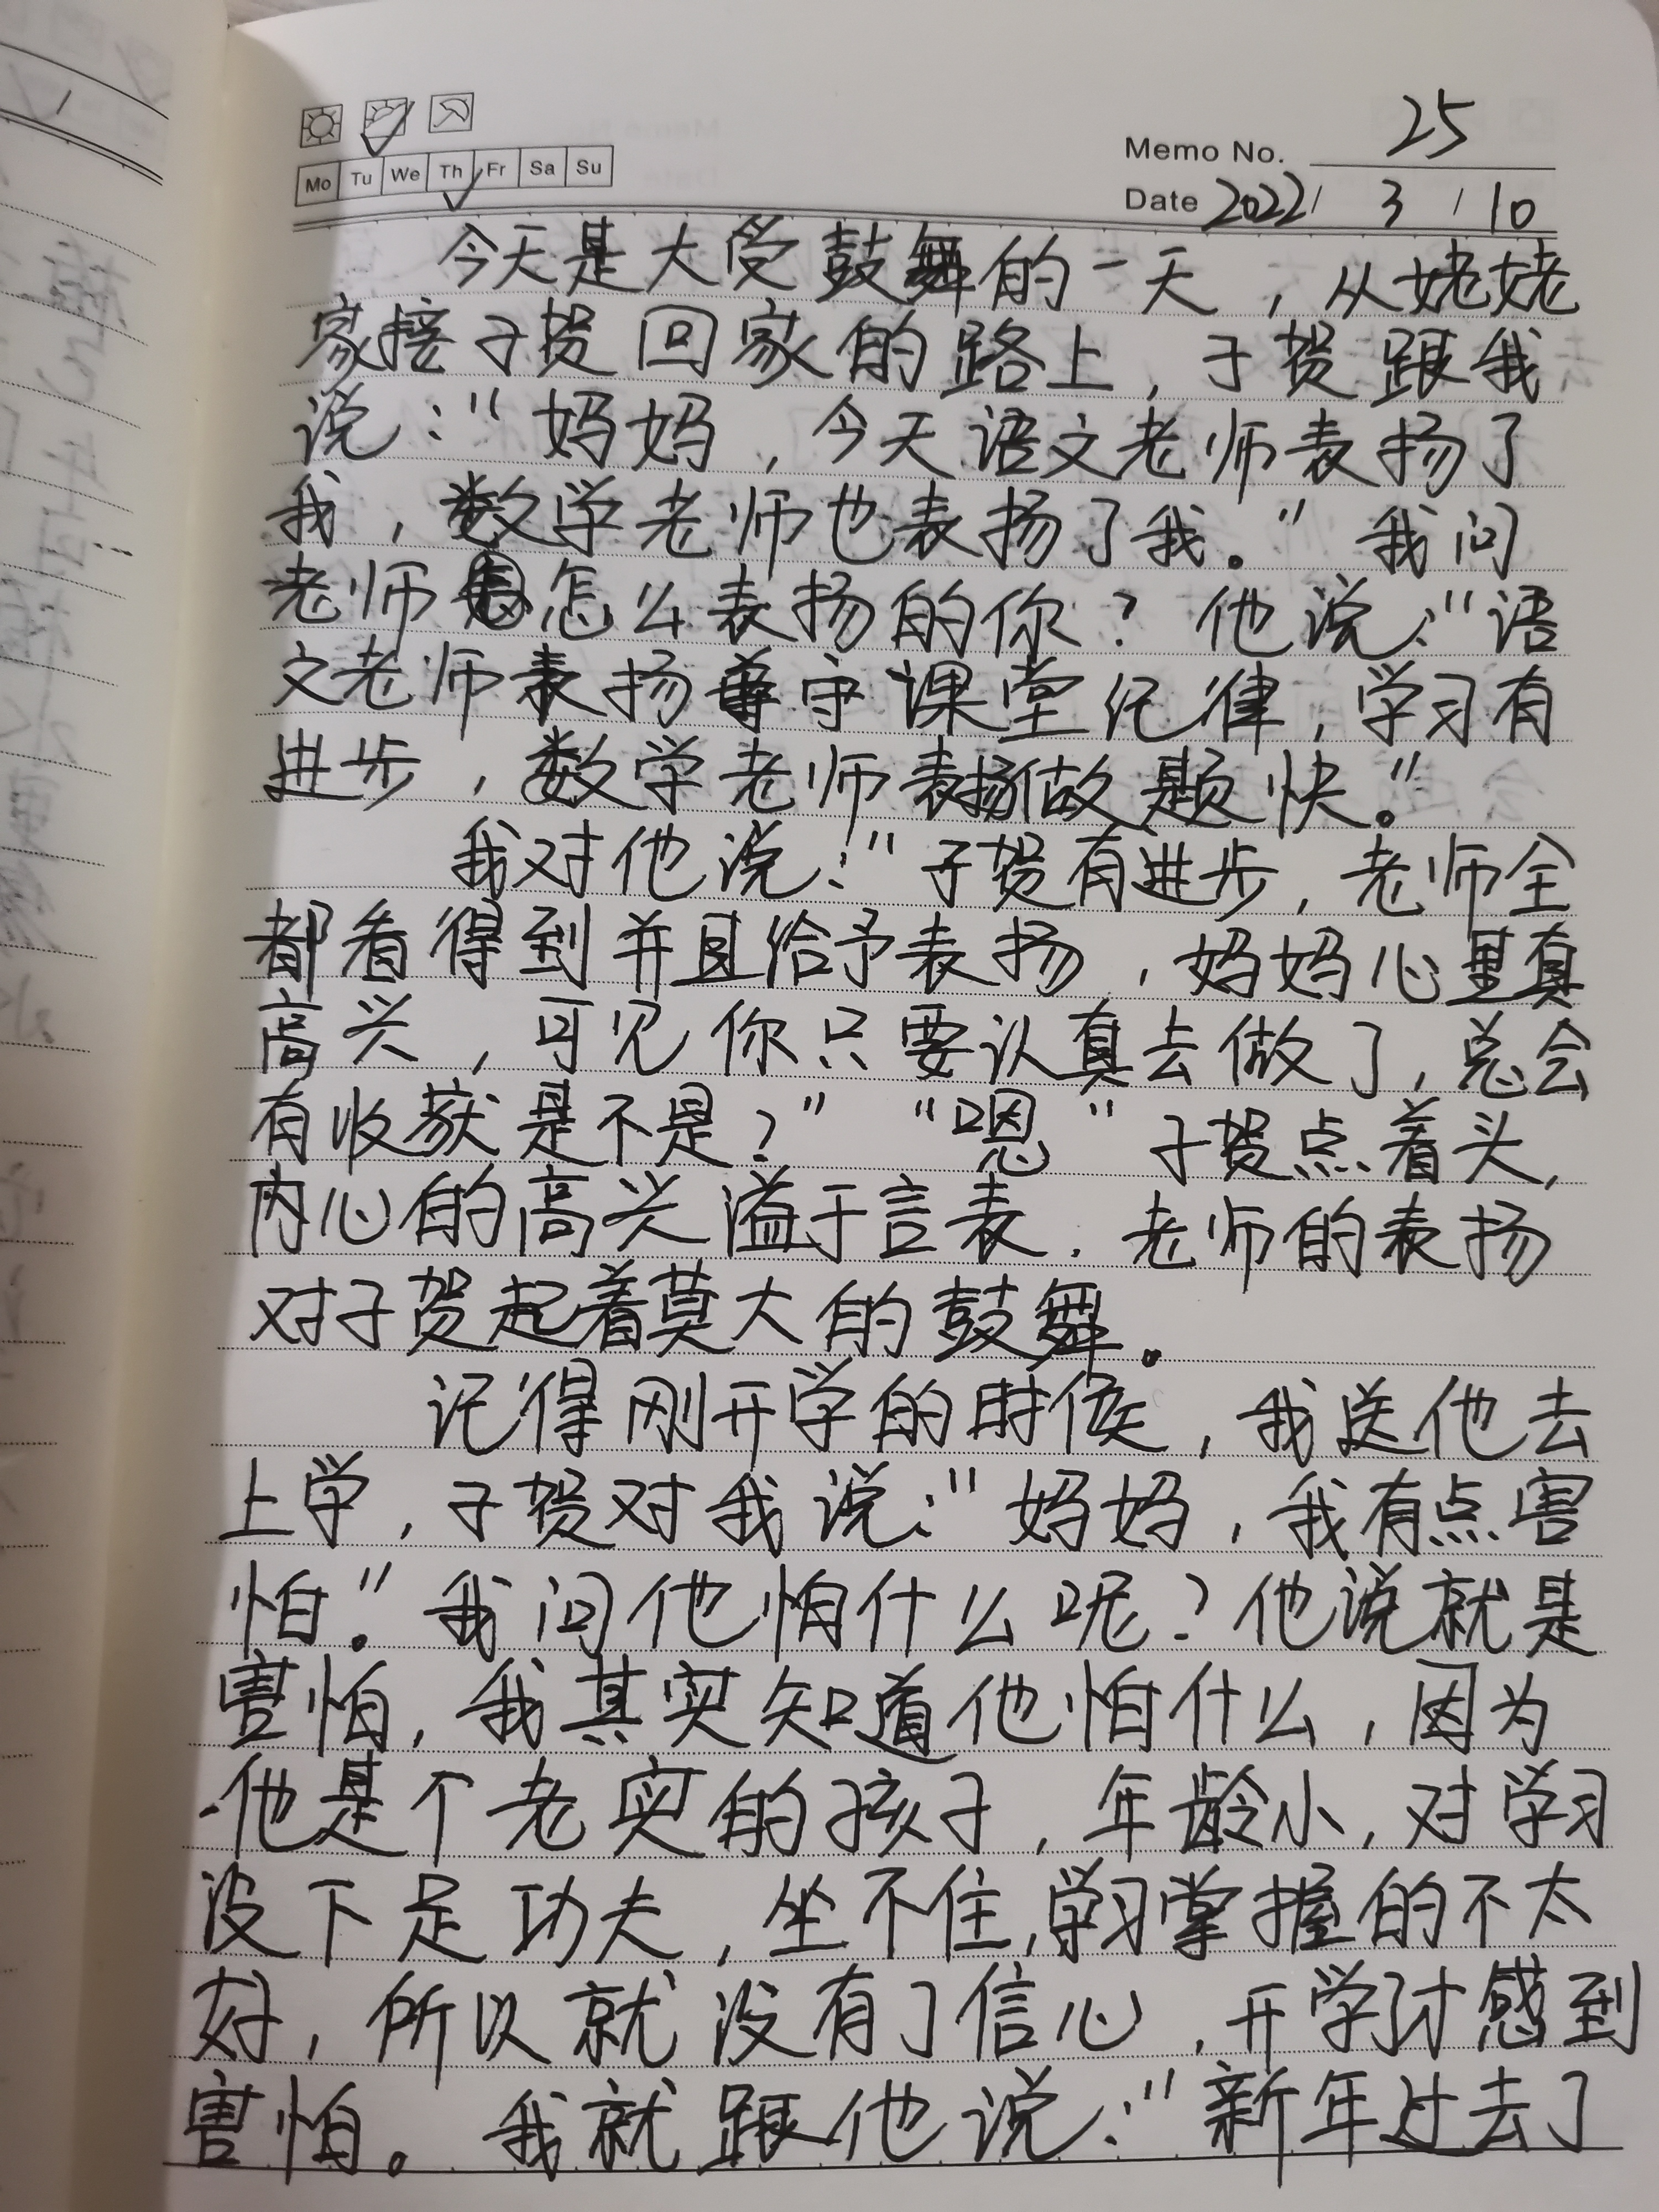 Memo No. 25
Mo Tu We Th Fr Sa Su
Date 2022/ 3 / 10
今天是大受鼓舞的一天，从姥姥
家接子贺回家的路上，子贺跟我
说："妈妈，今天语文老师表扬了
我，数学老师也表扬了我。"我问
老师怎么表扬的你？他说："语
文老师表扬尊守课堂纪律，学习有
进步，数学老师表扬做题快。"
我对他说："子贺有进步，老师全
都看得到并且给予表扬，妈妈心里真
高兴，可见你只要认真去做了，总会
有收获是不是？" "嗯"子贺点着头，
内心的高兴溢于言表．老师的表扬
对子贺起着莫大的鼓舞。
记得刚开学的时候，我送他去
上学，子贺对我说："妈妈，我有点害
怕。"我问他怕什么呢？他说就是
害怕，我其实知道他怕什么，因为
他是个老实的孩子，年龄小，对学习
没下足功夫，坐不住，学习掌握的不太
好，所以就没有了信心，开学才感到
害怕。我就跟他说："新年过去了